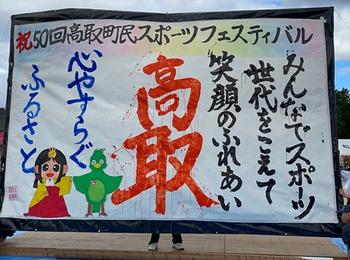 祝50回高取町民スポーツフェスティバル
みんなでスポーツ
世代をこえて
笑顔のふれあい
高取
心やすらぐ
ふるさと